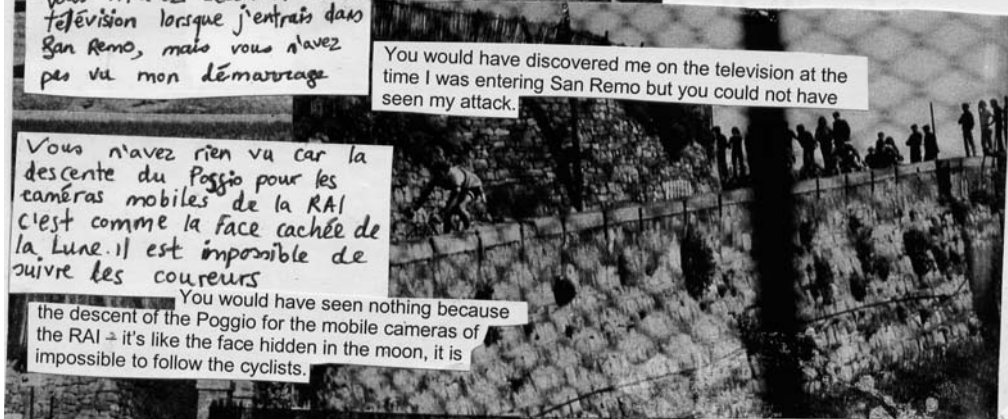 télévision lorsque j'entrais dans
San Remo, mais vous n'avez
pas vu mon démarrage
You would have discovered me on the television at the
time I was entering San Remo but you could not have
seen my attack.
Vous n'avez rien vu car la
descente du Poggio pour les
caméras mobiles de la RAI
c'est comme la face cachée de
la Lune. Il est impossible de
suivre les coureurs
You would have seen nothing because
the descent of the Poggio for the mobile cameras of
the RAI - it's like the face hidden in the moon, it is
impossible to follow the cyclists.